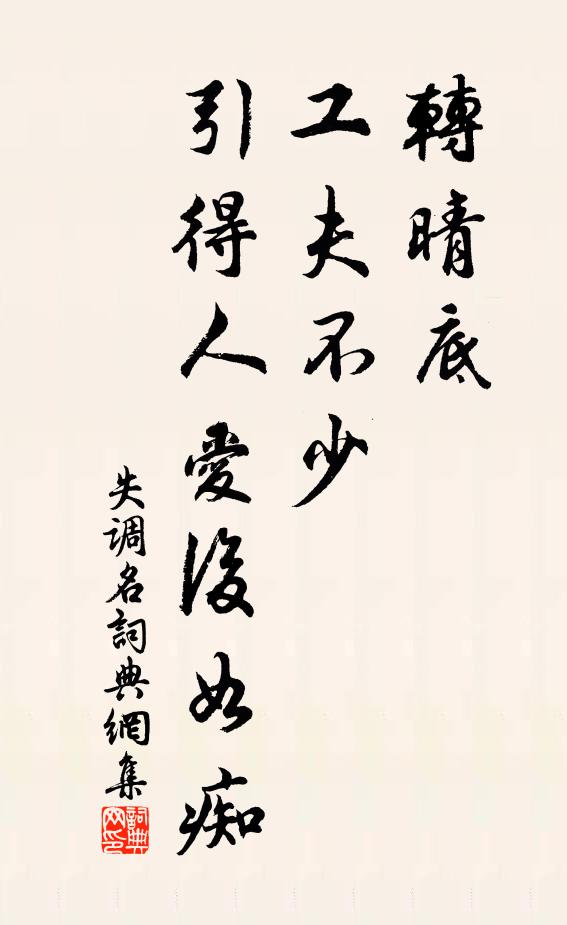 轉晴底
工夫不少
引得人愛後如痴
失调名詞典網集
詞典網印